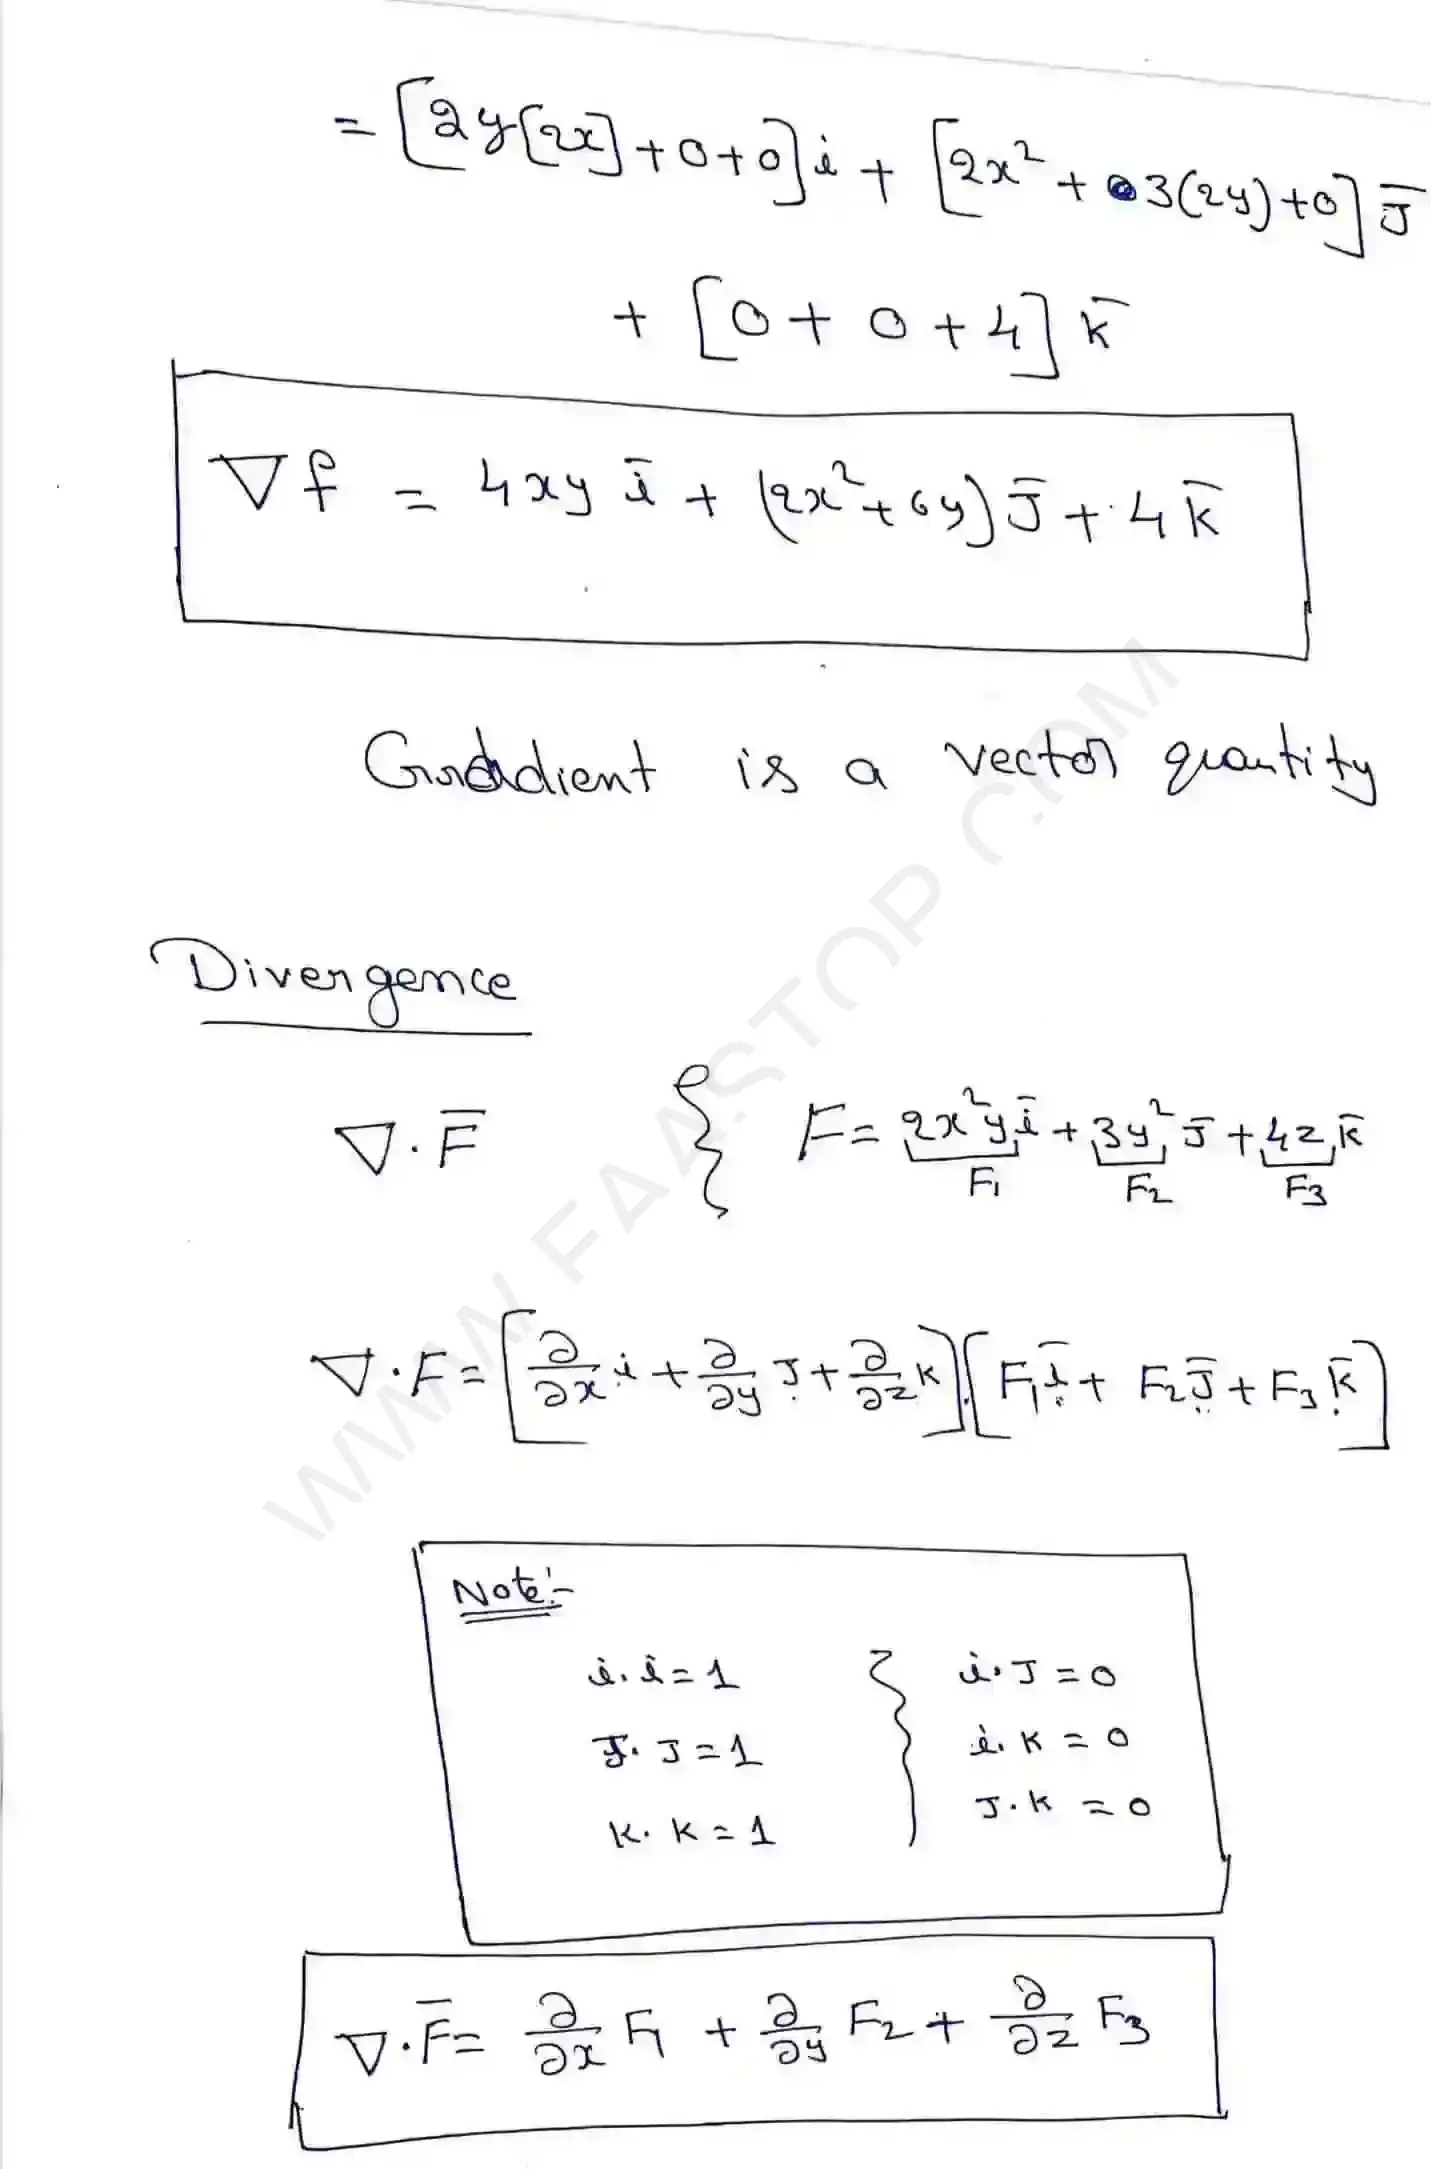 = [2y[2x]+0+0]i + [2x² + 3(2y)+0] J̄
+ [0 + 0 + 4] k̄
∇f = 4xy ī + (2x²+6y) J̄ + 4 k̄
Gradient is a vector quantity
Divergence
∇·F̄ { F = 2x²y ī + 3y² J̄ + 4z k̄
F₁ F₂ F₃
∇·F = [∂/∂x i + ∂/∂y J + ∂/∂z k]·[F₁ ī + F₂ J̄ + F₃ k̄]
Note:-
i·i = 1 } i·J = 0
J·J = 1 i·k = 0
k·k = 1 J·k = 0
∇·F̄ = ∂/∂x F₁ + ∂/∂y F₂ + ∂/∂z F₃
WWW.FAASTOP.COM